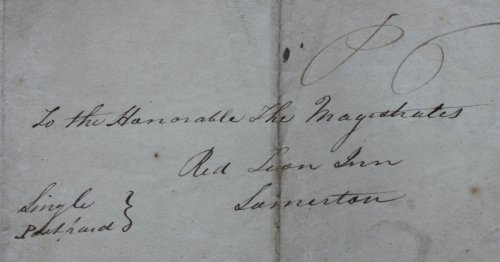 To the Honorable The Magistrates
Red Lion Inn
Somerton
Single
Post paid